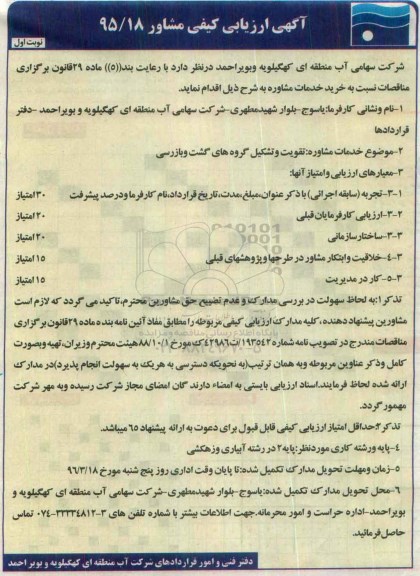 آگهی ارزیابی کیفی مشاور ۹۵/۱۸
نوبت اول
شرکت سهامی آب منطقه ای کهگیلویه وبویراحمد درنظر دارد با رعایت بند((۵)) ماده ۲۹قانون برگزاری
مناقصات نسبت به خرید خدمات مشاوره به شرح ذیل اقدام نماید.
۱-نام ونشانی کارفرما:یاسوج-بلوار شهیدمطهری-شرکت سهامی آب منطقه ای کهگیلویه و بویراحمد -دفتر
قراردادها
۲-موضوع خدمات مشاوره:تقویت وتشکیل گروه های گشت وبازرسی
۳-معیارهای ارزیابی وامتیاز آنها:
۳-۱-تجربه (سابقه اجرائی) با ذکر عنوان،مبلغ،مدت،تاریخ قرارداد،نام کارفرما ودرصد پیشرفت ۳۰امتیاز
۳-۲-ارزیابی کارفرمایان قبلی ۲۰امتیاز
۳-۳-ساختارسازمانی ۲۰امتیاز
۳-۴-خلاقیت وابتکار مشاور در طرحها وپژوهشهای قبلی ۱۵امتیاز
۳-۵-کار در مدیریت ۱۵امتیاز
تذکر۱:به لحاظ سهولت در بررسی مدارک و عدم تضییع حق مشاورین محترم،تاکید می گردد که لازم است
مشاورین پیشنهاد دهنده ،کلیه مدارک ارزیابی کیفی مربوطه را مطابق مفاد آئین نامه بنده ماده ۲۹قانون برگزاری
مناقصات مندرج در تصویب نامه شماره ۱۹۳۵۴۲/ت۴۲۹۸۶ک مورخ ۸۸/۱۰/۱هیئت محترم وزیران،تهیه وبصورت
کامل وذکر عناوین مربوطه وبه همان ترتیب(به نحویکه دسترسی به هریک به سهولت انجام پذیرد)در مدارک
ارائه شده لحاظ فرمایند.اسناد ارزیابی بایستی به امضاء دارند گان امضای مجاز شرکت رسیده وبه مهر شرکت
ممهور گردد.
تذکر۲:حداقل امتیاز ارزیابی کیفی قابل قبول برای دعوت به ارائه پیشنهاد ۶۵ میباشد.
۴-پایه ورشته کاری موردنظر:پایه۲ در رشته آبیاری وزهکشی
۵-زمان ومهلت تحویل مدارک تکمیل شده:تا پایان وقت اداری روز پنج شنبه مورخ ۹۶/۳/۱۸
۶-محل تحویل مدارک تکمیل شده:یاسوج-بلوار شهیدمطهری-شرکت سهامی آب منطقه ای کهگیلویه و
بویراحمد-اداره حراست و امور محرمانه.جهت اطلاعات بیشتر با شماره تلفن های ۳-۳۳۳۳۴۸۱۲-۰۷۴ تماس
حاصل فرمائید.
دفتر فنی و امور قراردادهای شرکت آب منطقه ای کهگیلویه و بویر احمد